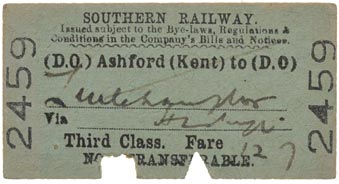 SOUTHERN RAILWAY.
Issued subject to the Bye-laws, Regulations &
Conditions in the Company's Bills and Notices.
(D.O.) Ashford (Kent) to (D.O)
Via
Third Class. Fare 12/7
NOT TRANSFERABLE.
2459
2459